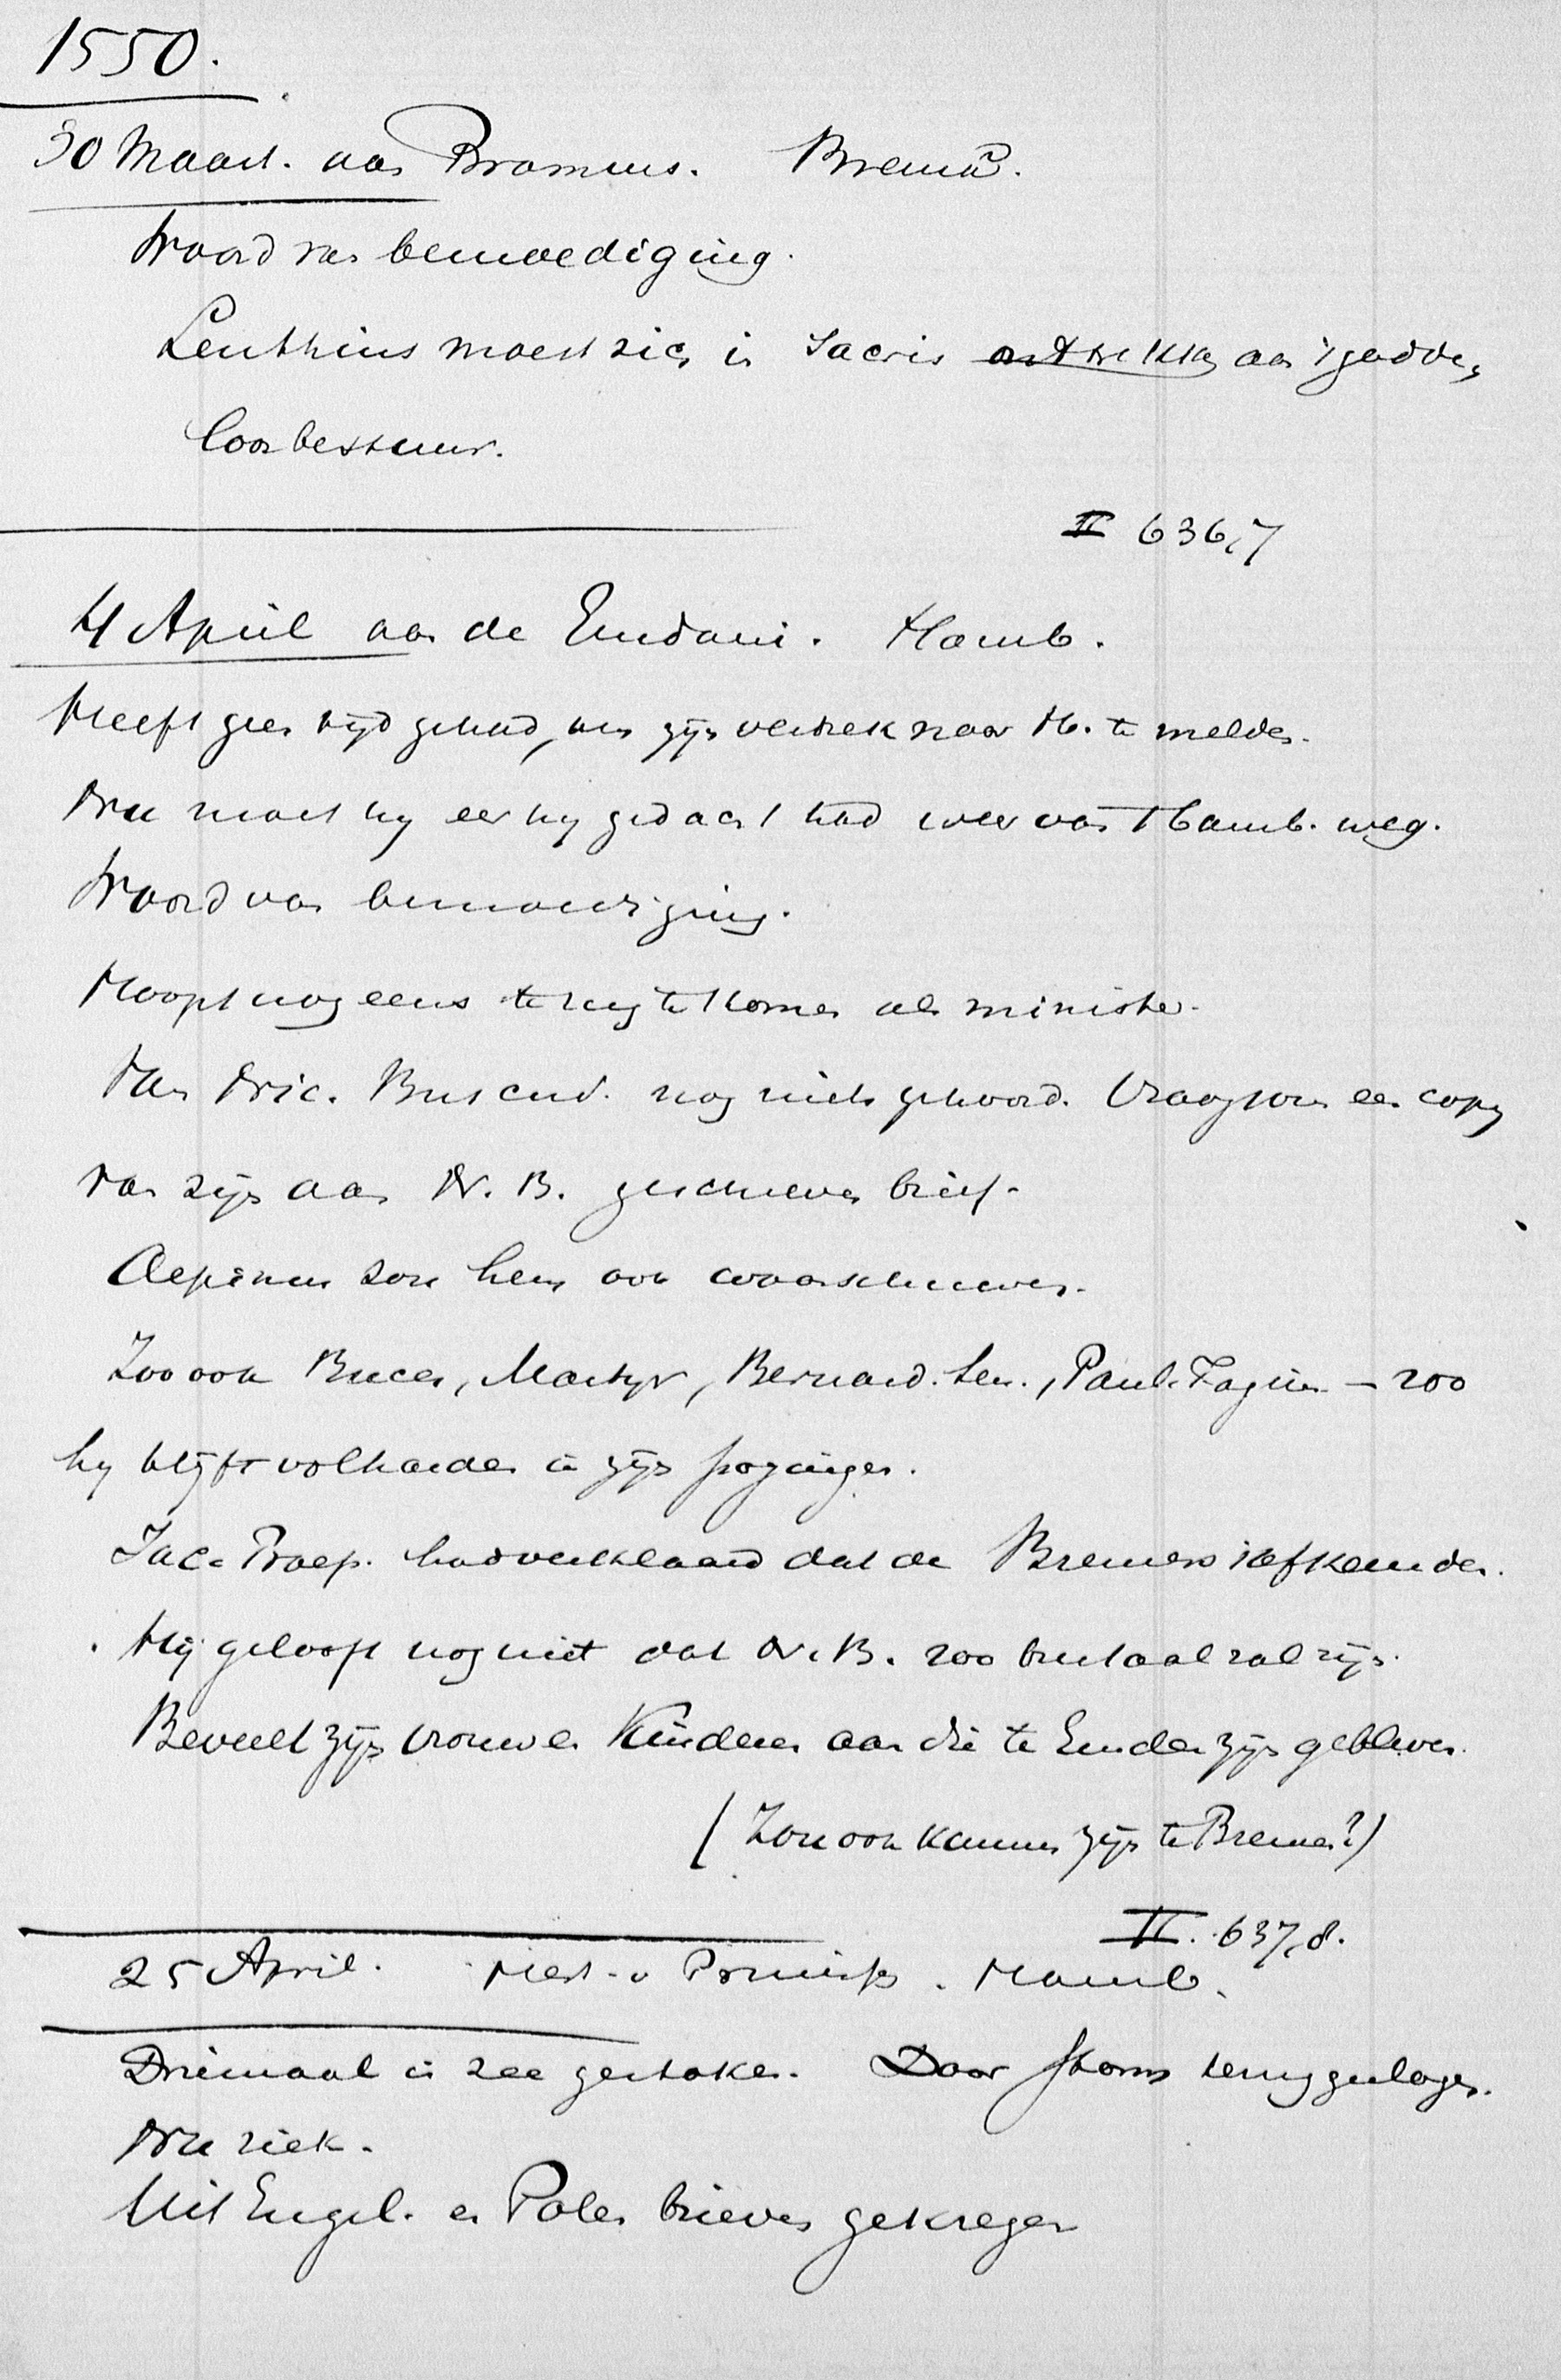 1550.
30 Maart. aan Bramius. Brema.
Woord van bemoediging.
Lenthius moest zich in Sacris onttrekken aan 't goddel.
loos bestuur.
II 636,7
4 April aan de Emdani. Hamb.
Heeft geen tijd gehad, om zijn vertrek naar H. te melden.
Nu moet hij eer hij gedacht had weer van Hamb. weg.
Woord van bemoediging.
Hoopt nog eens terug te komen als minister.
Van Nic. Buscud. nog niets gehoord. Vraagt om een copy
van zijn aan N. B. geschreven brief.
Aepinus zou hem ook waarschuwen.
Zoo ook Bucer, Martyr, Bernard. Sen., Paul. Fagius – zoo
hij blijft volharden in zijn pogingen.
Jac. Praep. had verklaard dat de Bremers 't afkeurden.
Hij gelooft nog niet dat N. B. zoo brutaal zal zijn.
Beveelt zijn vrouw en kinderen aan die te Emden zijn gebleven.
(Zou ook kunnen zijn te Bremen?)
II. 637,8.
25 April. Hert. v Pruisen. Hamb.
Driemaal in zee gestoken. Door storm teruggeslagen.
Nu ziek.
Uit Engel. en Polen brieven gekregen